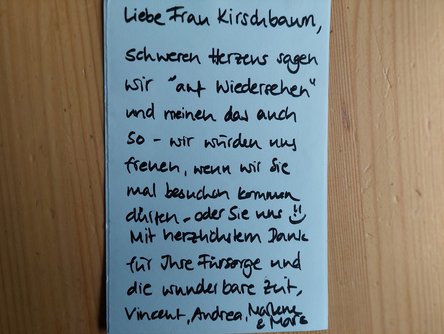 Liebe Frau Kirschbaum,
schweren Herzens sagen
wir "auf Wiedersehen"
und meinen das auch
so - wir würden uns
freuen, wenn wir Sie
mal besuchen kommen
dürften - oder Sie uns
Mit herzlichstem Dank
für Ihre Fürsorge und
die wunderbare Zeit,
Vincent, Andrea, Marlene
& Mats